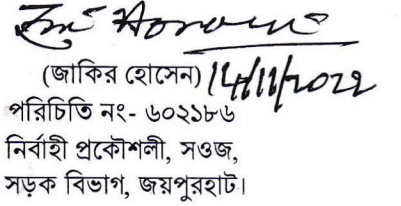 (জাকির হোসেন) 14/11/2022
পরিচিতি নং- ৬০২১৮৬
নির্বাহী প্রকৌশলী, সওজ,
সড়ক বিভাগ, জয়পুরহাট।